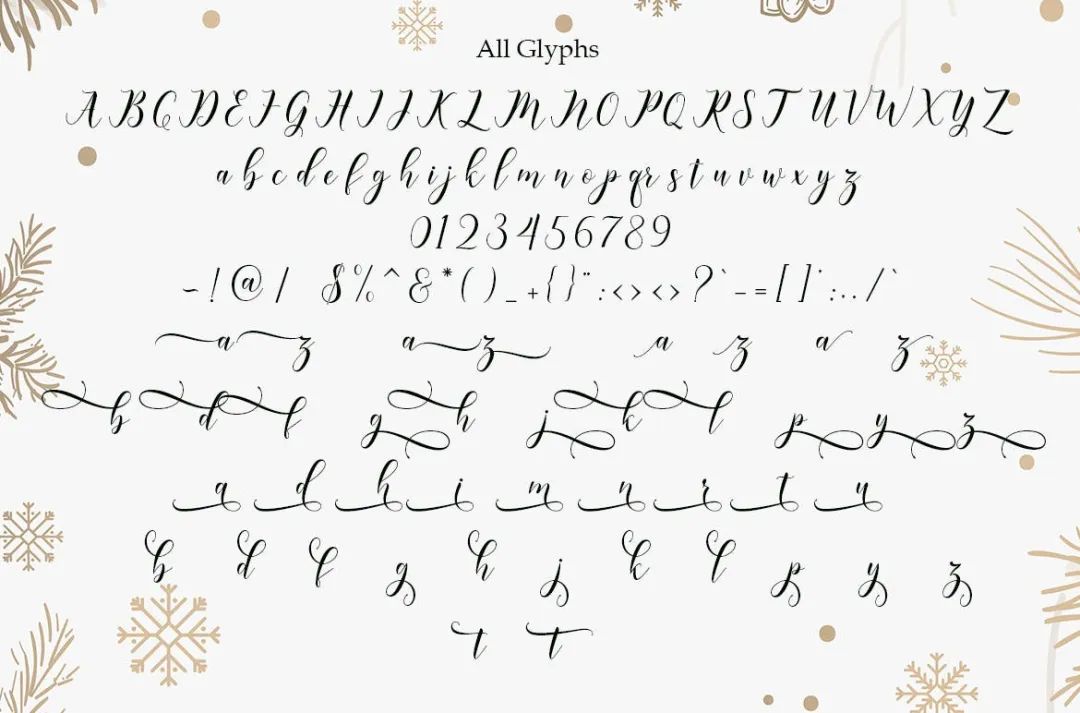 All Glyphs
A B C D E F G H I J K L M N O P Q R S T U V W X Y Z
a b c d e f g h i j k l m n o p q r s t u v w x y z
0 1 2 3 4 5 6 7 8 9
~ ! @ / $ % ^ & * ( ) _ + { } " : < > < > ? ` - = [ ] ' ; . . / `
a z a z a z a z
b d f g h j k l p y z
a d h i m n r t u
b d f g h j k l p y z
t t